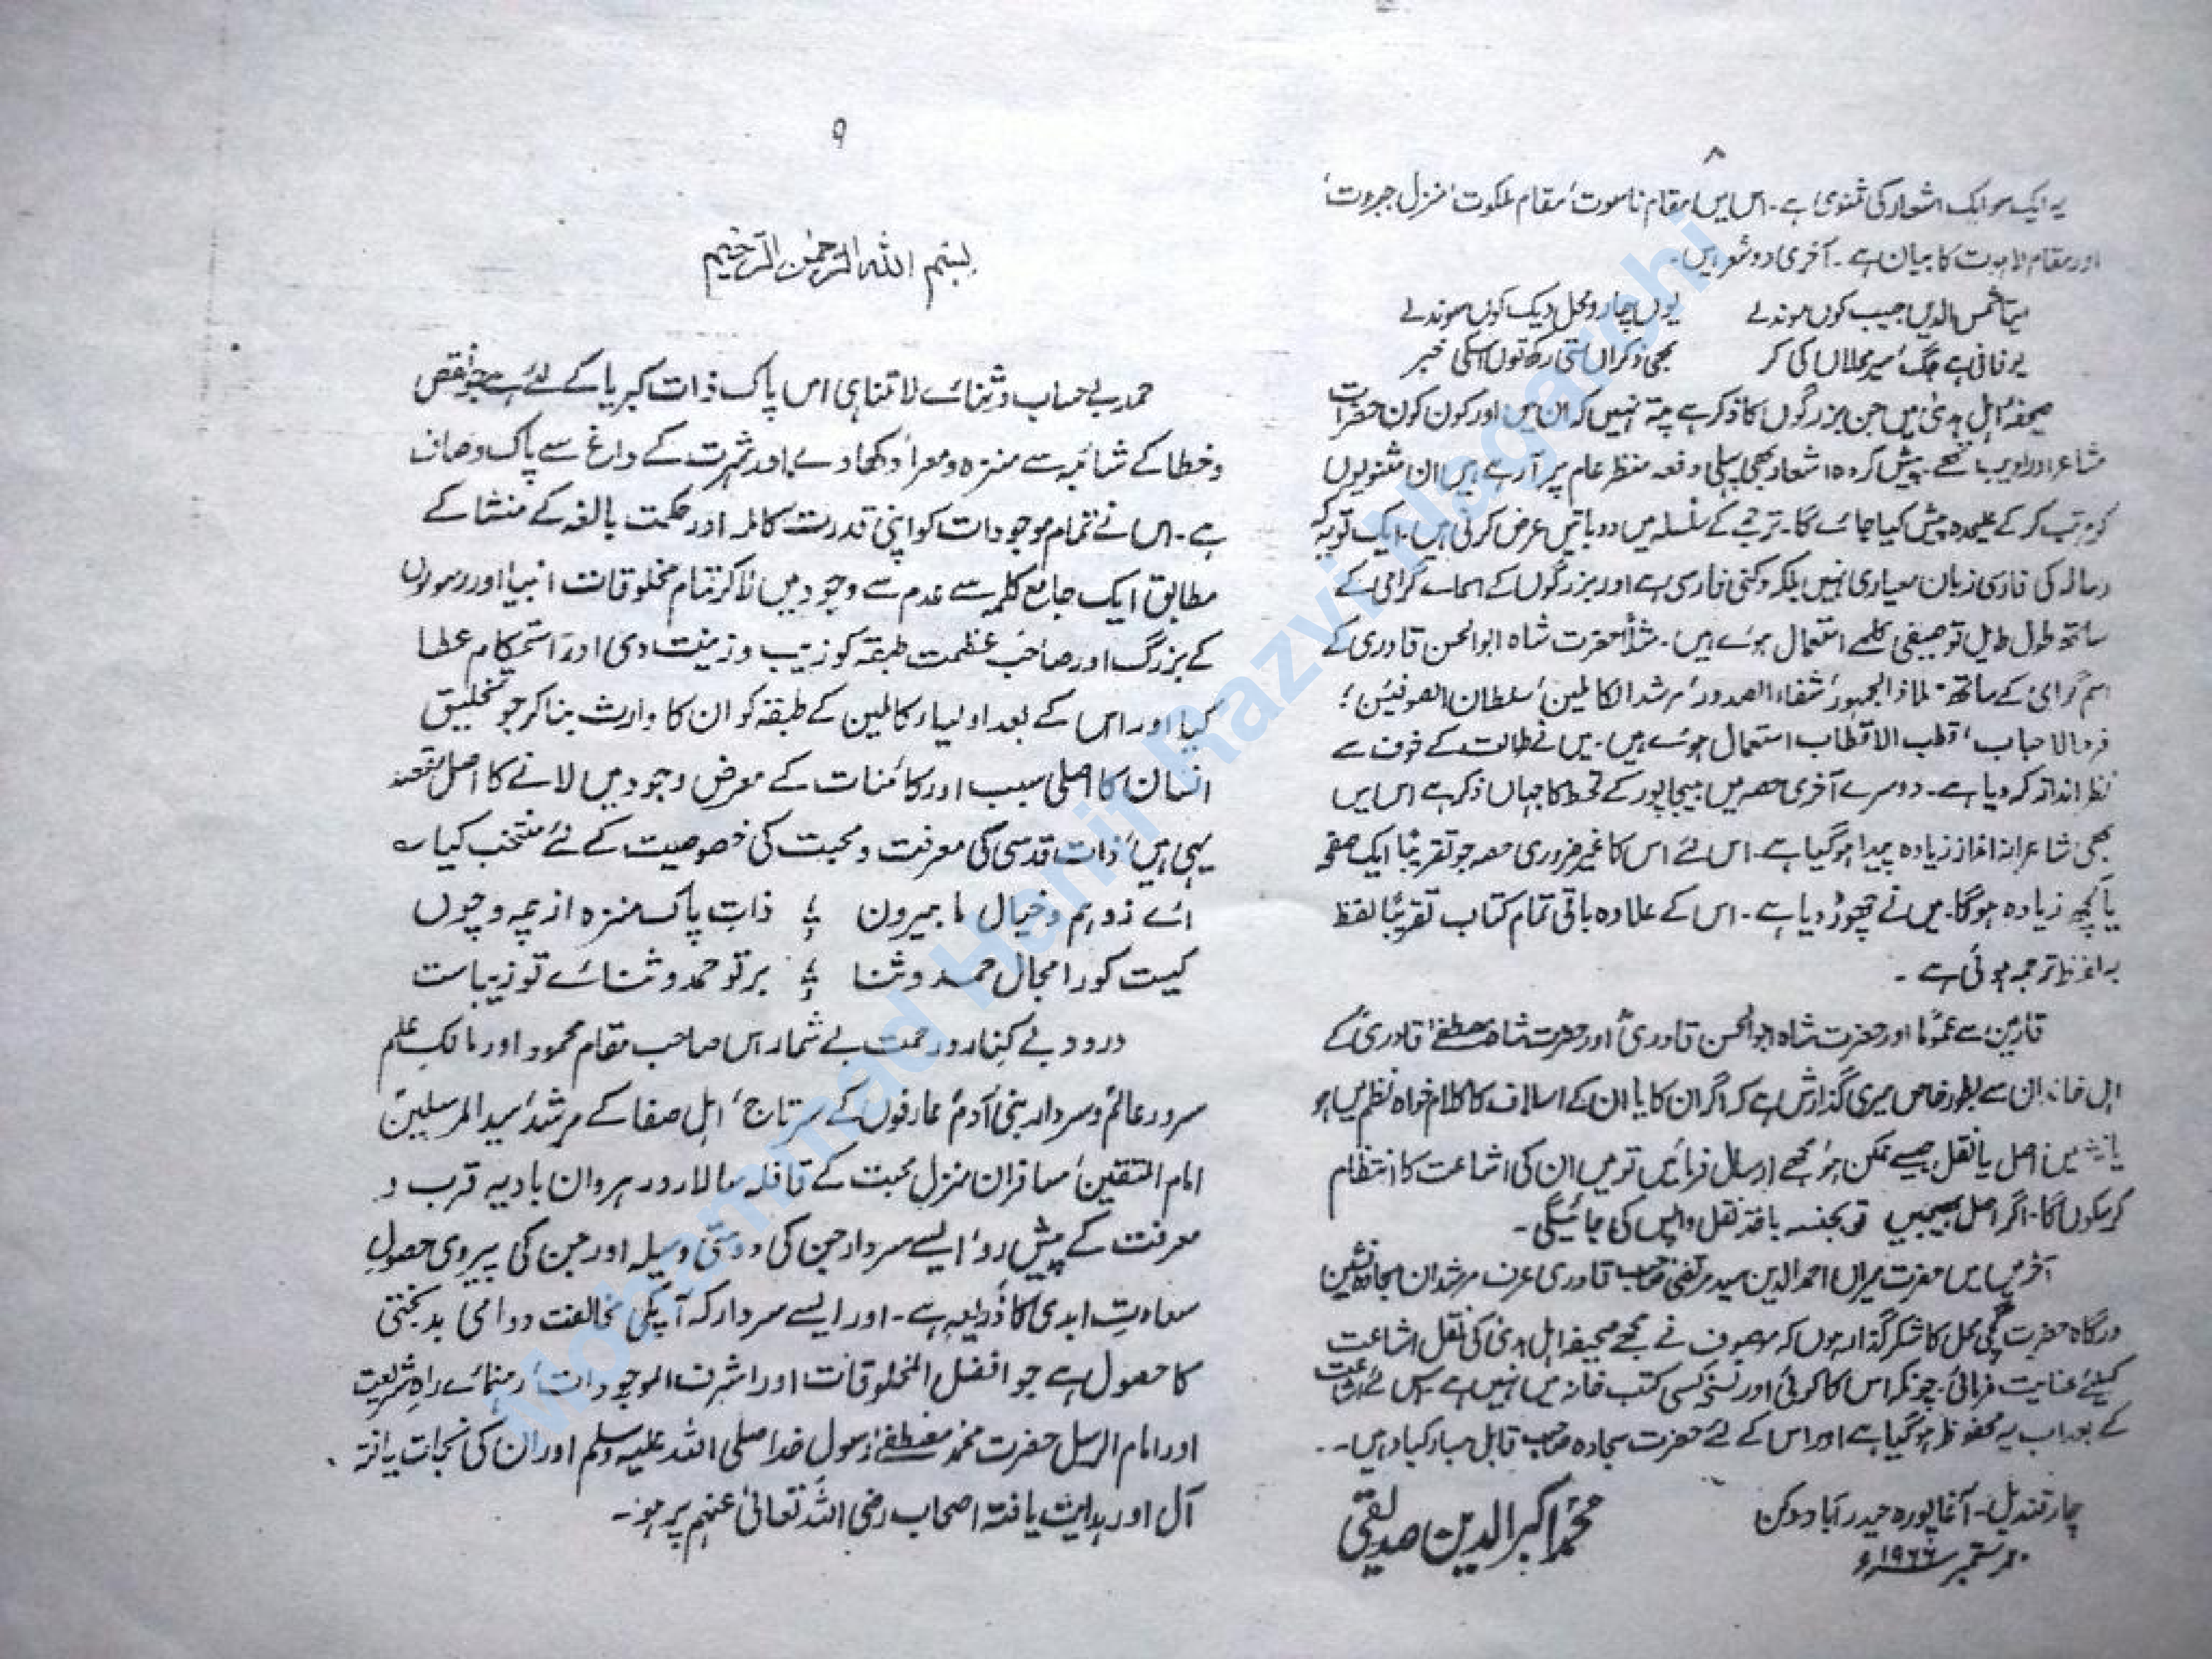 ۸
یہ ایک سو ایک اشعار کی مثنوی ہے۔ اس میں مقام ناسوت، مقام ملکوت، منزل جبروت،
اور مقام لاہوت کا بیان ہے۔ آخری دو شعر ہیں۔
شمس الدیں حبیب کوں موندلے یوں چار و محل دیک کوں موندلے
یو فانی ہے جگ میر محلاں کی کر بھی ذکراں ستی رکھ توں اسکی خبر
صحیفۂ اہل ہدیٰ میں جن بزرگوں کا ذکر ہے پتہ نہیں کہ ان میں اور کون کون حضرات
شاعر اور ادیب تھے۔ پیش کردہ اشعار بھی پہلی دفعہ منظر عام پر آرہے ہیں ان مثنویوں
کو مرتب کر کے علیحدہ پیش کیا جائے گا۔ ترجمے کے سلسلہ میں دو باتیں عرض کرنی ہیں۔ ایک تو یہ کہ
رسالہ کی فارسی زبان معیاری نہیں بلکہ دکنی فارسی ہے اور بزرگوں کے اسمائے گرامی کے
ساتھ طول طویل توصیفی کلمے استعمال ہوئے ہیں۔ مثلاً حضرت شاہ ابوالحسن قادری کے
اسم گرامی کے ساتھ ملاذ الجمہور، شفاء الصدور، مرشد الکاملین، سلطان الصوفئین،
فرد الاحباب، قطب الاقطاب استعمال ہوئے ہیں۔ میں نے طوالت کے خوف سے
نظر انداز کر دیا ہے۔ دوسرے آخری حصہ میں بیجاپور کے قحط کا جہاں ذکر ہے اس میں
بھی شاعرانہ انداز زیادہ پیدا ہوگیا ہے۔ اس لئے اس کا غیر ضروری حصہ جو تقریباً ایک صفحہ
یا کچھ زیادہ ہوگا۔ میں نے چھوڑ دیا ہے۔ اس کے علاوہ باقی تمام کتاب تقریباً لفظ
بہ لفظ ترجمہ ہوئی ہے۔
قارئین سے عموماً اور حضرت شاہ ابوالحسن قادریؒ اور حضرت شاہ مصطفےٰ قادریؒ کے
اہل خاندان سے بطور خاص میری گذارش ہے کہ اگر ان کا یا ان کے اسلاف کا کلام خواہ نظم میں ہو
یا نثر میں اصل یا نقل جیسے ممکن ہو مجھے ارسال فرمائیں تو میں ان کی اشاعت کا انتظام
کر سکوں گا۔ اگر اصل بھیجیں تو بجنسہ بعد نقل واپس کی جائیگی۔
آخر میں میں حضرت میراں احمد الدین سید مرتضیٰ صاحب قادری عرف مرشداں سجادہ نشین
درگاہ حضرت گچی محل کا شکر گذار ہوں کہ موصوف نے مجھے صحیفہ اہل ہدیٰ کی نقل اشاعت
کیلئے عنایت فرمائی۔ چونکہ اس کا کوئی اور نسخہ کسی کتب خانہ میں نہیں ہے۔ اس لئے اشاعت
کے بعد اب یہ محفوظ ہوگیا ہے اور اس کے لئے حضرت سجادہ صاحب قابل مبارکباد ہیں۔
چار قندیل۔ آغا پورہ حیدرآباد دکن
ستمبر ۱۹۶۶ء
محمد اکبر الدین صدیقی
۹
بسم اللہ الرحمٰن الرحیم
حمد بے حساب و ثنائے لا تناہی اس پاک ذات کبریا کے لئے ہے جو نقص
و خطا کے شائبہ سے منزہ و معرا دکھاوے اور شہرت کے داغ سے پاک و صاف
ہے۔ اس نے تمام موجودات کو اپنی قدرت کاملہ اور حکمت بالغہ کے منشا کے
مطابق ایک جامع کلمہ سے عدم سے وجود میں لا کر تمام مخلوقات انبیا اور رسولوں
کے بزرگ اور صاحب عظمت طبقہ کو زیب و زینت دی اور استحکام عطا
کیا اور اس کے بعد اولیاء کاملین کے طبقہ کو ان کا وارث بنا کر جو تخلیق
انسان کا اصلی سبب اور کائنات کے معرض وجود میں لانے کا اصل مقصد
یہی ہیں، ذات قدسی کی معرفت و محبت کی خصوصیت کے لئے منتخب کیا ؎
اے ز وہم و خیال ما بیرون ؛ ذات پاکت منزہ از چہ و چوں
کیست کو را مجال حمد و ثنا ؛ بر تو حمد و ثنائے تو زیباست
درود بے کنار و رحمت بے شمار اس صاحب مقام محمود اور مالک علم
سرور عالم و سردار بنی آدم، عارفوں کے سرتاج، اہل صفا کے مرشد، سید المرسلین
امام المتقین، مسافران منزل محبت کے قافلہ سالار و رہروان بادیہ قرب و
معرفت کے پیش رو، ایسے سردار جن کی دوستی وسیلہ اور جن کی پیروی حصول
سعادت ابدی کا ذریعہ ہے۔ اور ایسے سردار کہ آپ کی مخالفت دوامی بدبختی
کا حصول ہے جو افضل المخلوقات اور اشرف الموجودات، رہنمائے راہ شریعت
اور امام الرسل حضرت محمد مصطفےٰ رسول خدا صلی اللہ علیہ وسلم اور ان کی نجات یافتہ
آل اور ہدایت یافتہ اصحاب رضی اللہ تعالیٰ عنہم پر ہو۔
Mohammad Hanif Razvi Nagarchi